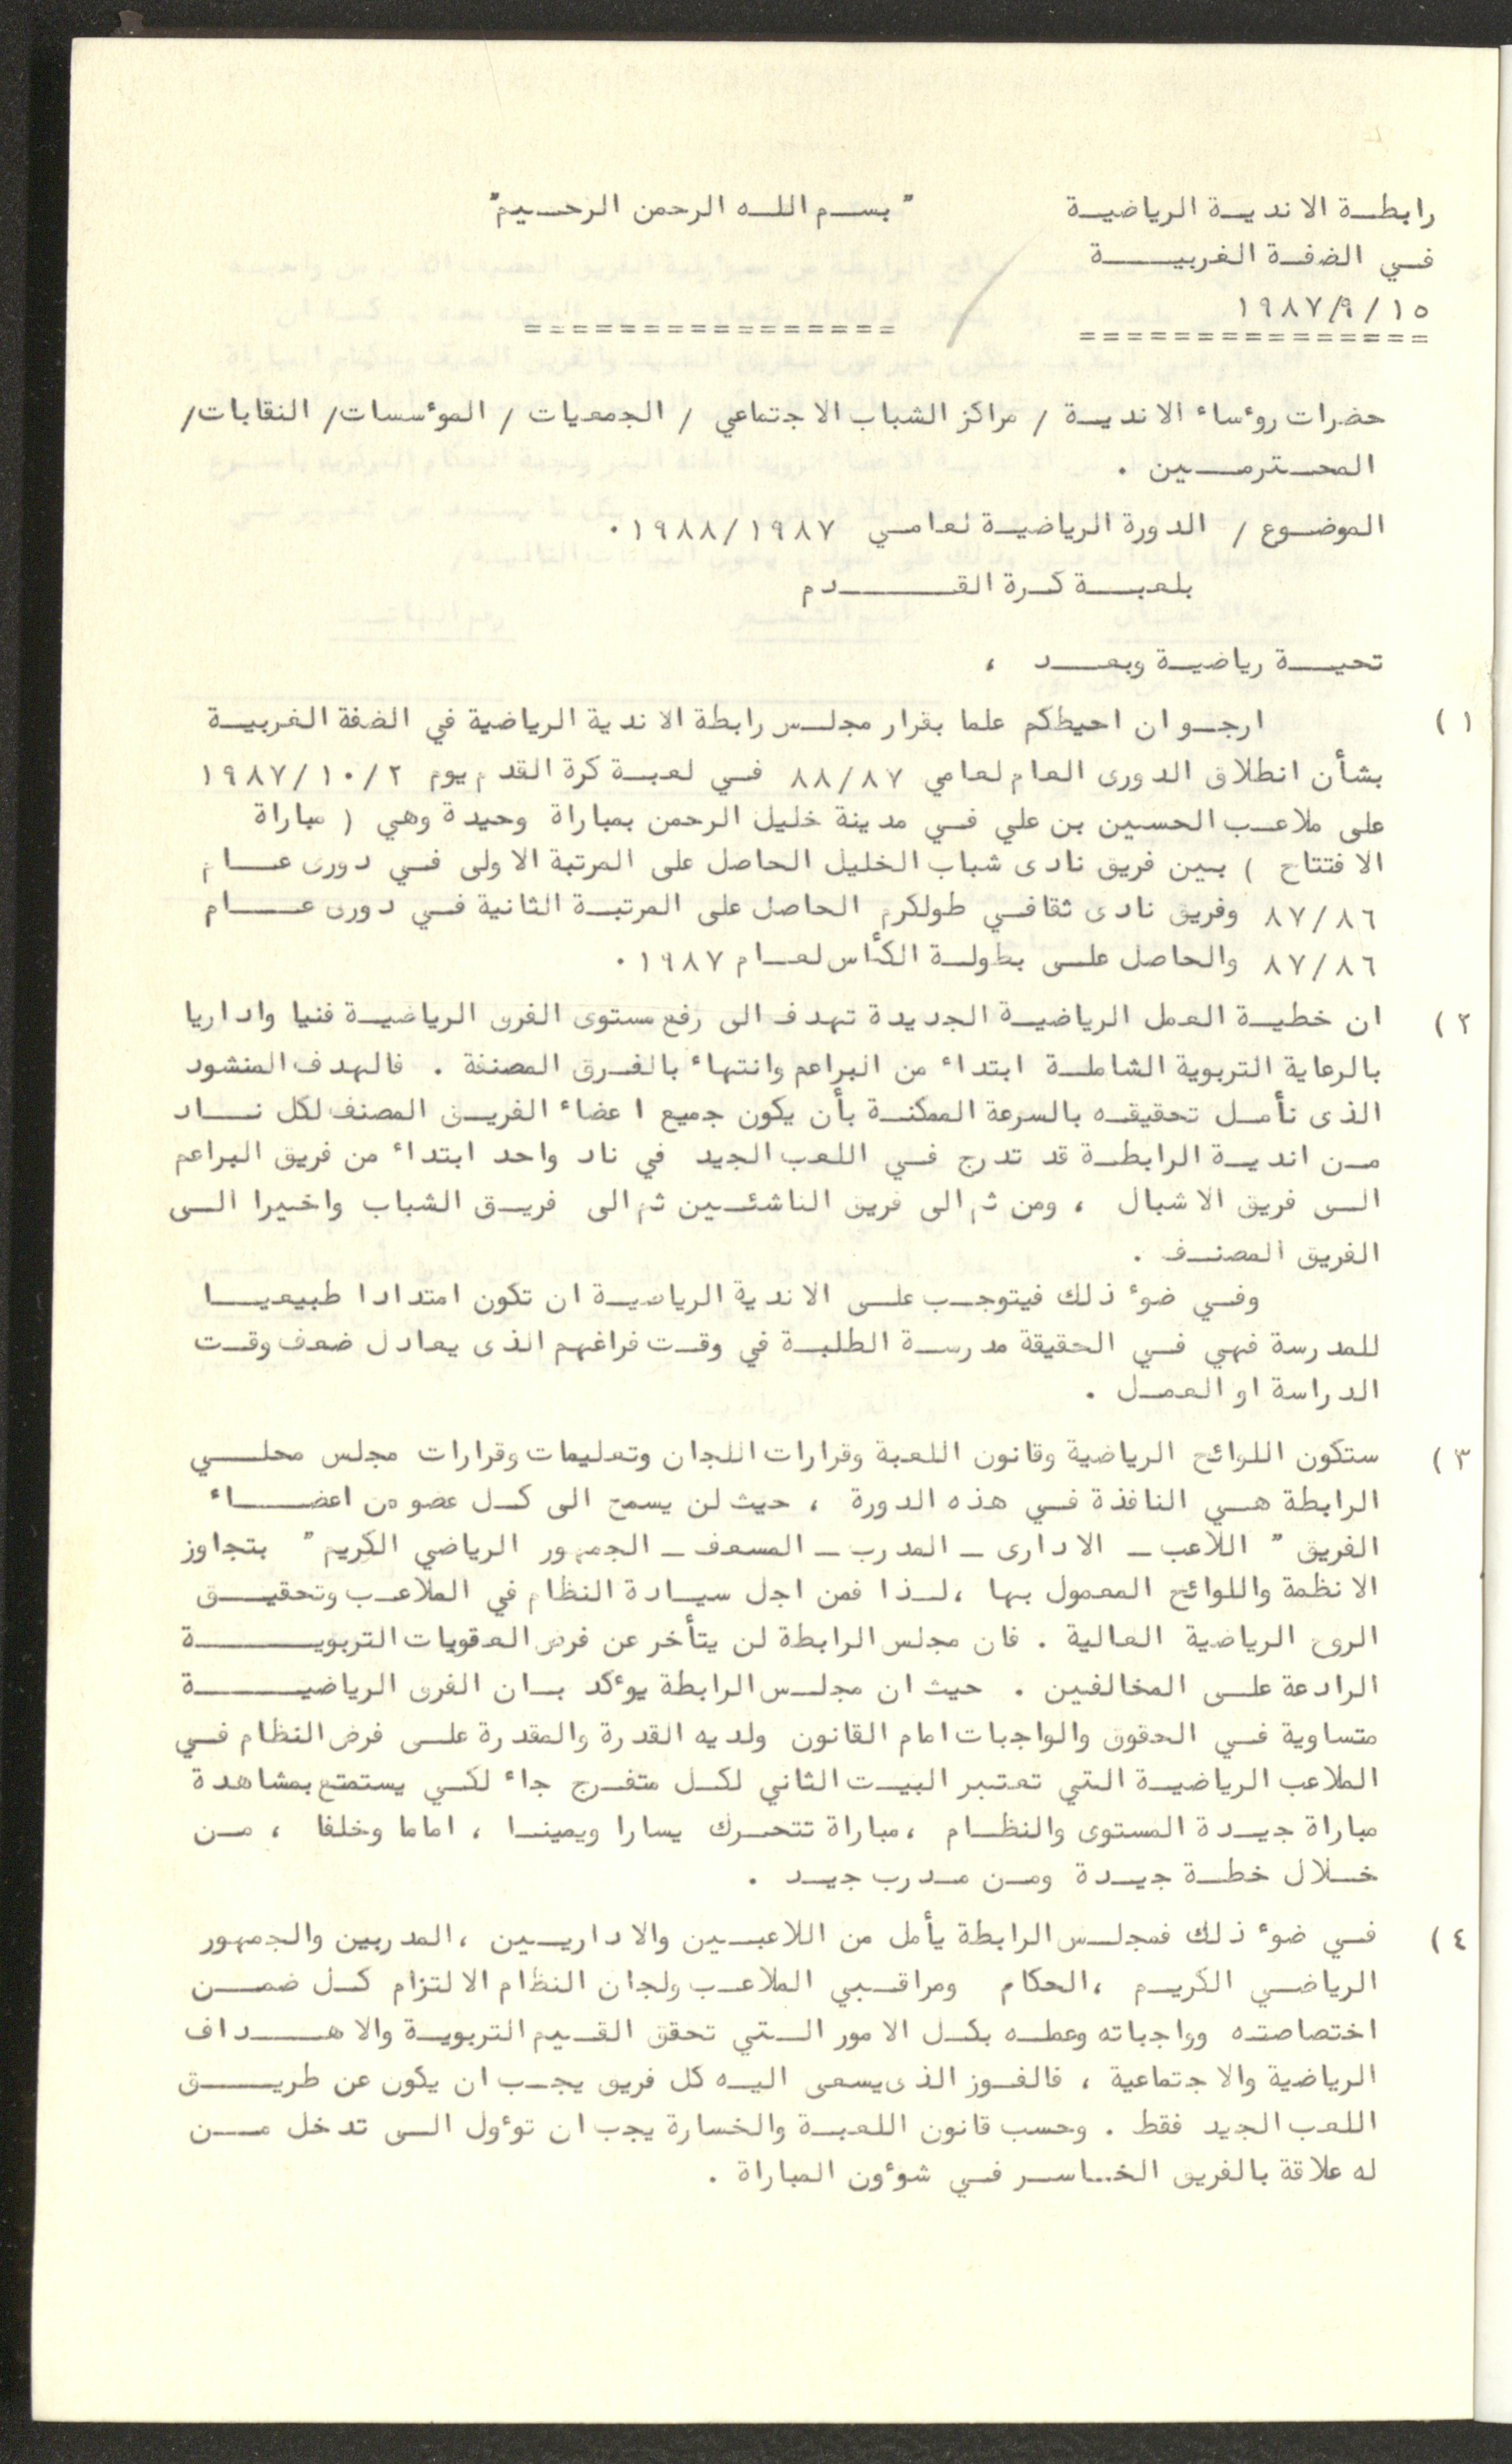 رابطة الاندية الرياضية
"بسم الله الرحمن الرحيم"
في الضفة الغربية
١٩٨٧/٩/١٥
===============
================
حضرات روءساء الاندية / مراكز الشباب الاجتماعي / الجمعيات / الموءسسات/ النقابات/
المحترمين .
الموضوع / الدورة الرياضية لعامي ١٩٨٨/١٩٨٧.
بلعبة كرة القدم
تحية رياضية وبعد ،
١) ارجو ان احيطكم علما بقرار مجلس رابطة الاندية الرياضية في الضفة الغربية
بشأن انطلاق الدورى العام لعامي ٨٨/٨٧ في لعبة كرة القدم يوم ١٩٨٧/١٠/٢
على ملاعب الحسين بن علي في مدينة خليل الرحمن بمباراة وحيدة وهي ( مباراة
الافتتاح ) بين فريق نادى شباب الخليل الحاصل على المرتبة الاولى في دورى عام
٨٧/٨٦ وفريق نادى ثقافي طولكرم الحاصل على المرتبة الثانية في دورى عام
٨٧/٨٦ والحاصل على بطولة الكأس لعام ١٩٨٧.
٢) ان خطية العمل الرياضية الجديدة تهدف الى رفع مستوى الفرق الرياضية فنيا واداريا
بالرعاية التربوية الشاملة ابتداء من البراعم وانتهاء بالفرق المصنفة . فالهدف المنشود
الذى نأمل تحقيقه بالسرعة الممكنة بأن يكون جميع اعضاء الفريق المصنف لكل ناد
من اندية الرابطة قد تدرج في اللعب الجيد في ناد واحد ابتداء من فريق البراعم
الى فريق الاشبال ، ومن ثم الى فريق الناشئين ثم الى فريق الشباب واخيرا الى
الفريق المصنف .
وفي ضوء ذلك فيتوجب على الاندية الرياضية ان تكون امتدادا طبيعيا
للمدرسة فهي في الحقيقة مدرسة الطلبة في وقت فراغهم الذى يعادل ضعف وقت
الدراسة او العمل .
٣) ستكون اللوائح الرياضية وقانون اللعبة وقرارات اللجان وتعليمات وقرارات مجلس محلي
الرابطة هي النافذة في هذه الدورة ، حيث لن يسمح الى كل عضو من اعضاء
الفريق " اللاعب - الادارى - المدرب - المسعف - الجمهور الرياضي الكريم " بتجاوز
الانظمة واللوائح المعمول بها ، لذا فمن اجل سيادة النظام في الملاعب وتحقيق
الروح الرياضية العالية . فان مجلس الرابطة لن يتأخر عن فرض العقوبات التربوية
الرادعة على المخالفين . حيث ان مجلس الرابطة يوءكد بان الفرق الرياضية
متساوية في الحقوق والواجبات امام القانون ولديه القدرة والمقدرة على فرض النظام في
الملاعب الرياضية التي تعتبر البيت الثاني لكل متفرج جاء لكي يستمتع بمشاهدة
مباراة جيدة المستوى والنظام ، مباراة تتحرك يسارا ويمينا ، اماما وخلفا ، من
خلال خطة جيدة ومن مدرب جيد .
٤) في ضوء ذلك فمجلس الرابطة يأمل من اللاعبين والاداريين ، المدربين والجمهور
الرياضي الكريم ، الحكام ومراقبي الملاعب ولجان النظام الالتزام كل ضمن
اختصاصته وواجباته وعمله بكل الامور التي تحقق القيم التربوية والاهداف
الرياضية والاجتماعية ، فالفوز الذى يسعى اليه كل فريق يجب ان يكون عن طريق
اللعب الجيد فقط . وحسب قانون اللعبة والخسارة يجب ان توءول الى تدخل من
له علاقة بالفريق الخاسر في شوءون المباراة .